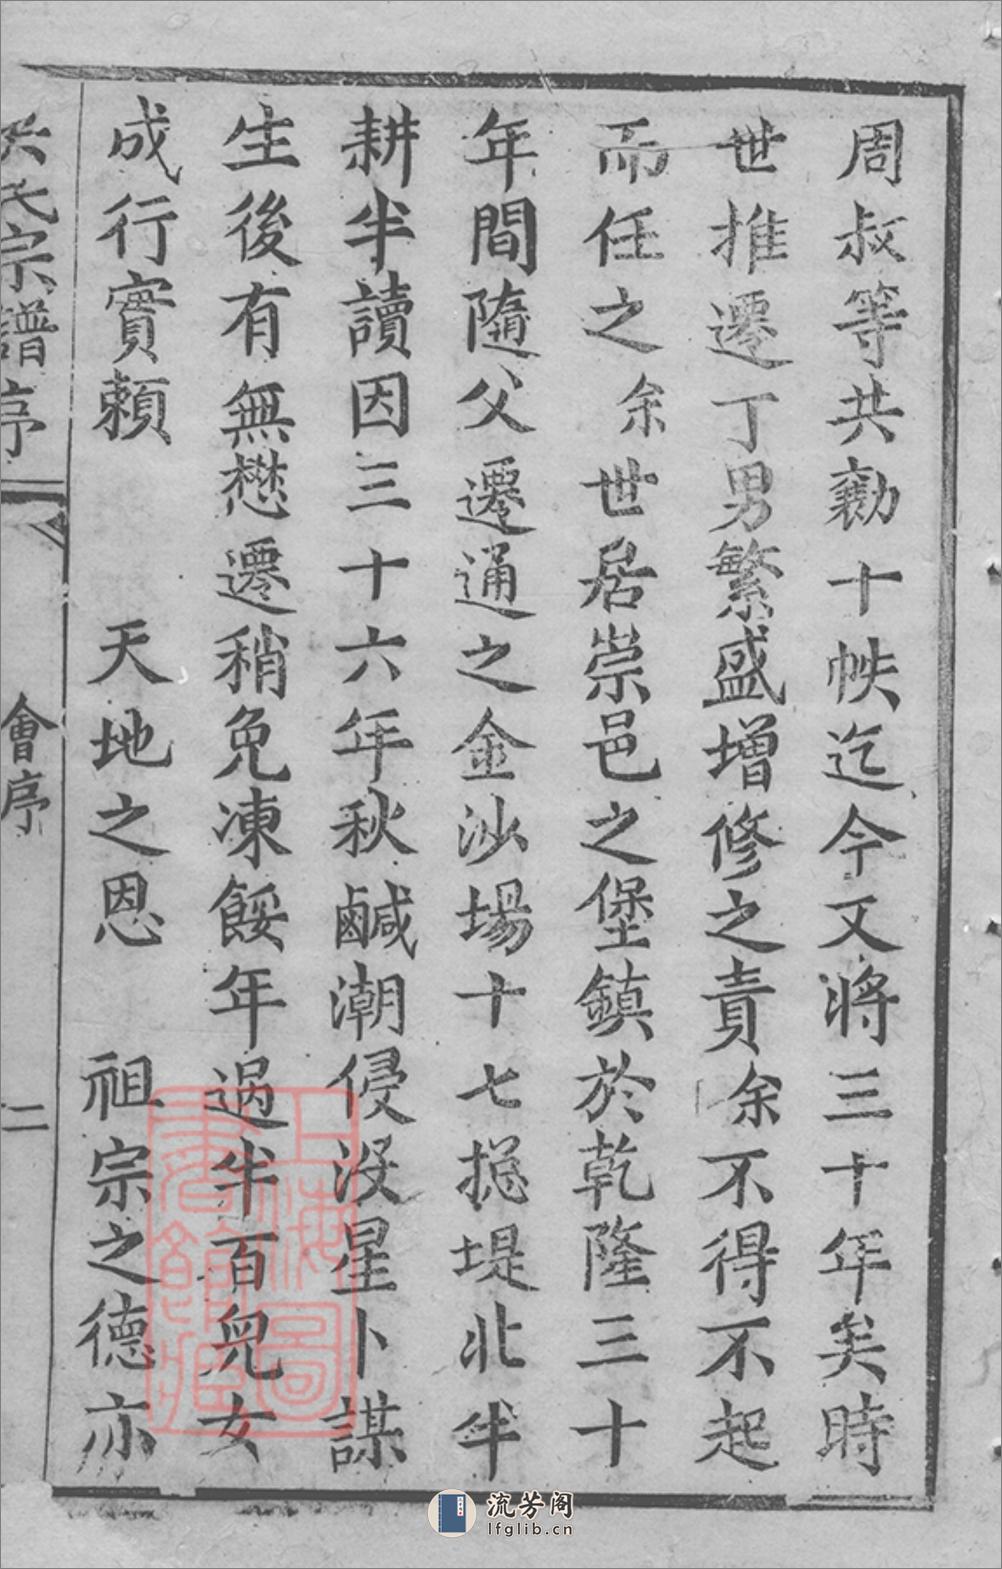 周叔等共勷十帙迄今又將三十年矣時
世推遷丁男繁盛增修之責余不得不起
而任之余世居崇邑之堡鎮於乾隆三十
年間隨父遷通之金沙場十七總堤北半
耕半讀因三十六年秋鹹潮侵沒星卜謀
生後有無懋遷稍免凍餒年過半百兒女
成行實賴 天地之恩 祖宗之德亦
氏宗譜序 會序 二
上海圖書館藏
流芳阁
lfglib.cn